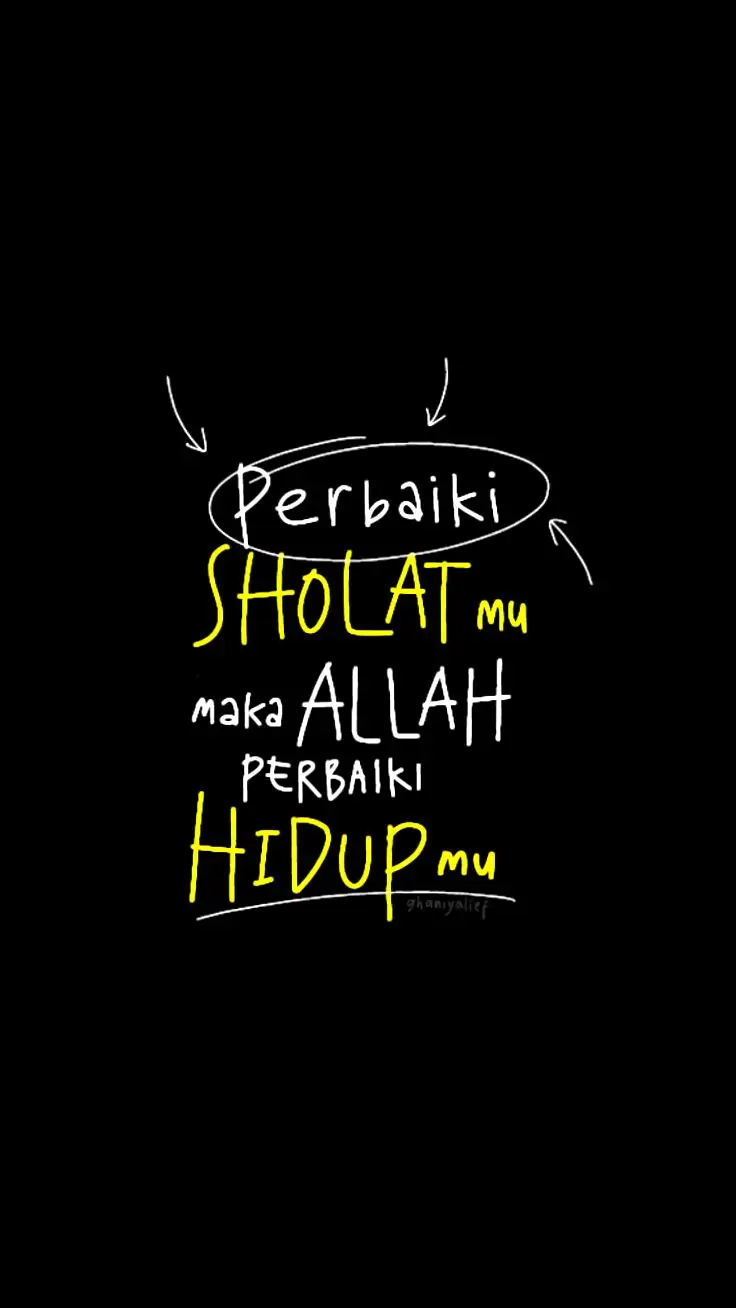 Perbaiki
SHOLAT mu
maka ALLAH
PERBAIKI
HIDUP mu
ghaniyalief